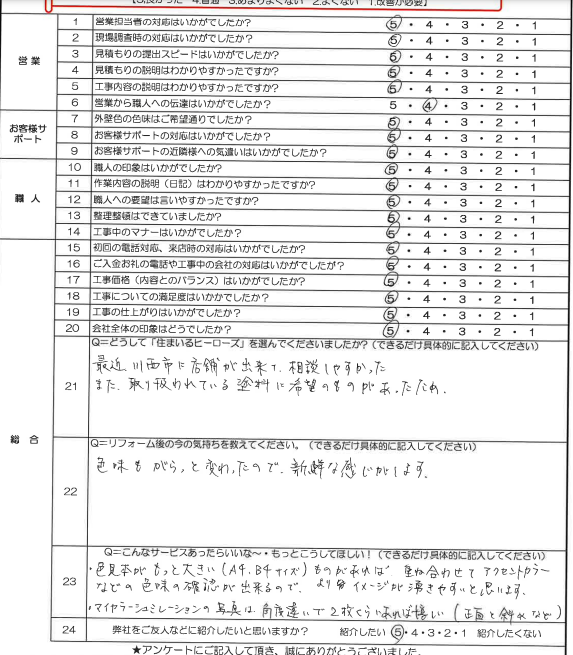 【5.良かった 4.普通 3.あまりよくない 2.よくない 1.改善が必要】
営業
1 営業担当者の対応はいかがでしたか? 5・4・3・2・1
2 現場調査時の対応はいかがでしたか? 5・4・3・2・1
3 見積もりの提出スピードはいかがでしたか? 5・4・3・2・1
4 見積もりの説明はわかりやすかったですか? 5・4・3・2・1
5 工事内容の説明はわかりやすかったですか? 5・4・3・2・1
6 営業から職人への伝達はいかがでしたか? 5・4・3・2・1
お客様サポート
7 外壁色の色味はご希望通りでしたか? 5・4・3・2・1
8 お客様サポートの対応はいかがでしたか? 5・4・3・2・1
9 お客様サポートの近隣様への気遣いはいかがでしたか? 5・4・3・2・1
職人
10 職人の印象はいかがでしたか? 5・4・3・2・1
11 作業内容の説明(日記)はわかりやすかったですか? 5・4・3・2・1
12 職人への要望は言いやすかったですか? 5・4・3・2・1
13 整理整頓はできていましたか? 5・4・3・2・1
14 工事中のマナーはいかがでしたか? 5・4・3・2・1
総合
15 初回の電話対応、来店時の対応はいかがでしたか? 5・4・3・2・1
16 ご入金お礼の電話や工事中の会社の対応はいかがでしたが? 5・4・3・2・1
17 工事価格(内容とのバランス)はいかがでしたか? 5・4・3・2・1
18 工事についての満足度はいかかでしたか? 5・4・3・2・1
19 工事の仕上がりはいかがでしたか? 5・4・3・2・1
20 会社全体の印象はどうでしたか? 5・4・3・2・1
21 Q=どうして「住まいるヒーローズ」を選んでくださいましたか?(できるだけ具体的に記入してください)
最近、川西市に店舗が出来て、相談しやすかった
また、取り扱われている塗料に希望のものがあったため。
22 Q=リフォーム後の今の気持ちを教えてください。(できるだけ具体的に記入してください)
色味もがらっと変わったので、新鮮な感じがします。
23 Q=こんなサービスあったらいいな~・もっとこうしてほしい!(できるだけ具体的に記入してください)
・色見本がもっと大きい(A4.B4サイズ)ものがあれば 重ね合わせて アクセントカラー
などの色味の確認が出来るので、より分イメージが湧きやすいと思います。
・マイヤラーシュミレーションの写真は角度違いで2枚くらいあれば嬉しい(正面と斜めなど)
24 弊社をご友人などに紹介したいと思いますか? 紹介したい 5・4・3・2・1 紹介したくない
★アンケートにご記入して頂き、誠にありがとうございました。